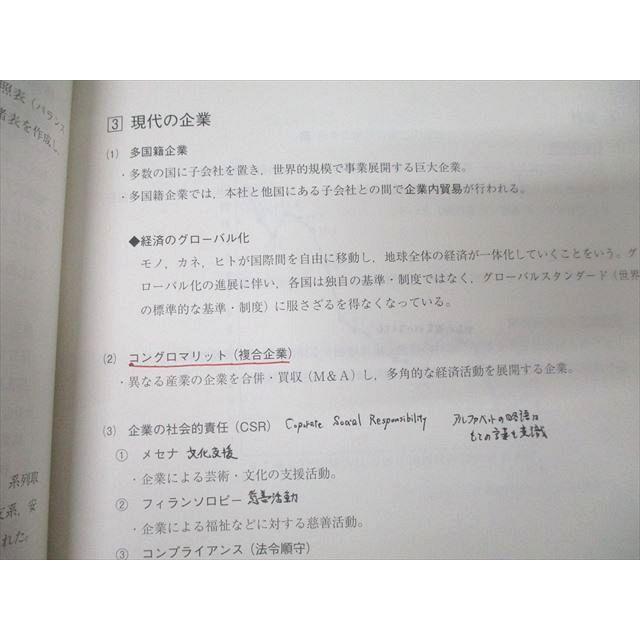 照表（バランス
者表を作成し
3 現代の企業
(1) 多国籍企業
・多数の国に子会社を置き，世界的規模で事業展開する巨大企業。
・多国籍企業では，本社と他国にある子会社との間で企業内貿易が行われる。
◆経済のグローバル化
モノ，カネ，ヒトが国際間を自由に移動し，地球全体の経済が一体化していくことをいう。グ
ローバル化の進展に伴い，各国は独自の基準・制度ではなく，グローバルスタンダード（世界
の標準的な基準・制度）に服さざるを得なくなっている。
(2) コングロマリット（複合企業）
・異なる産業の企業を合併・買収（M＆A）し，多角的な経済活動を展開する企業。
(3) 企業の社会的責任（CSR） Coporate Social Responsibility アルファベットの略語は
もとの言葉を意識
① メセナ 文化支援
・企業による芸術・文化の支援活動。
② フィランソロピー 慈善活動
・企業による福祉などに対する慈善活動。
③ コンプライアンス（法令順守）
系列取
系，安
れた。